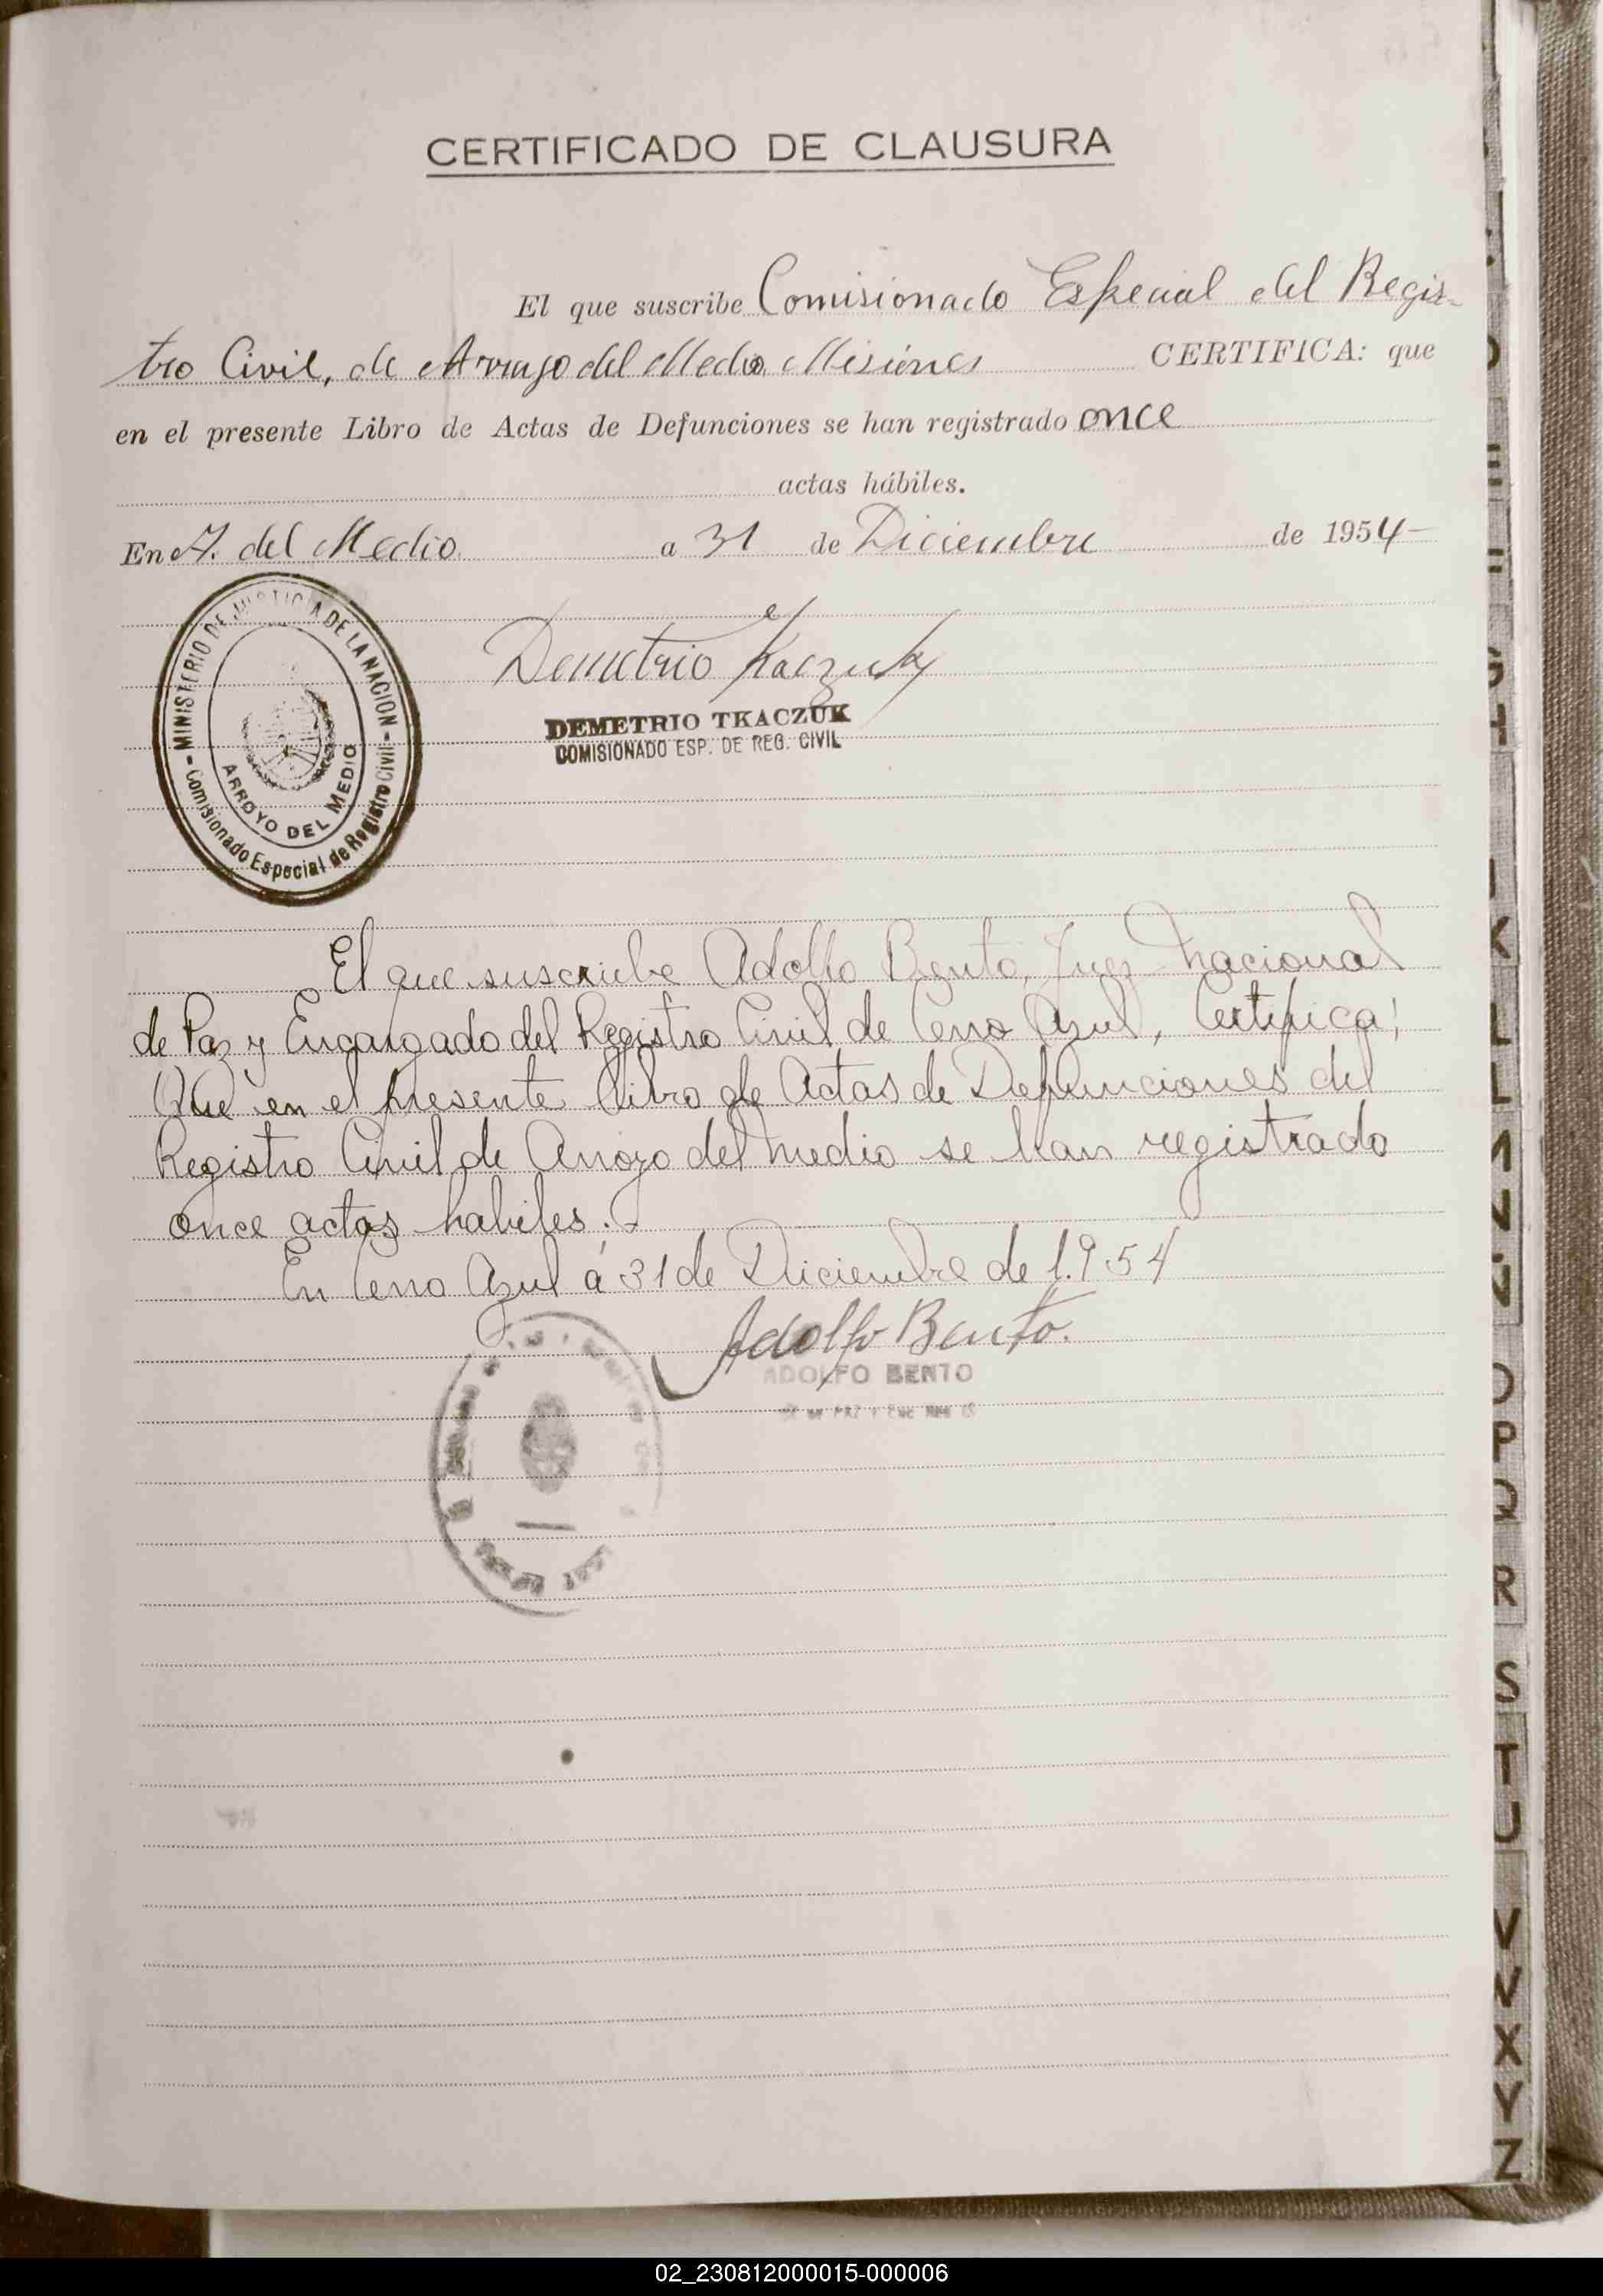 CERTIFICADO DE CLAUSURA
El que suscribe Comisionado Especial del Regis-
tro Civil, de Arroyo del Medio Misiones CERTIFICA: que
en el presente Libro de Actas de Defunciones se han registrado once
actas hábiles.
En A. del Medio a 31 de Diciembre de 1954-
MINISTERIO DE JUSTICIA DE LA NACION
Comisionado Especial de Registro Civil
ARROYO DEL MEDIO
Demetrio Tkaczuk
DEMETRIO TKACZUK
COMISIONADO ESP. DE REG. CIVIL
El que suscribe Adolfo Bento, Juez Nacional
de Paz y Encargado del Registro Civil de Cerro Azul, Certifica;
Que en el presente libro de Actas de Defunciones del
Registro Civil de Arroyo del Medio se han registrado
once actas habiles.
En Cerro Azul á 31 de Diciembre de 1.954
Adolfo Bento.
ADOLFO BENTO
DE PAZ Y
K
L
O
P
Q
R
S
T
U
V
X
Y
Z
02_230812000015-000006